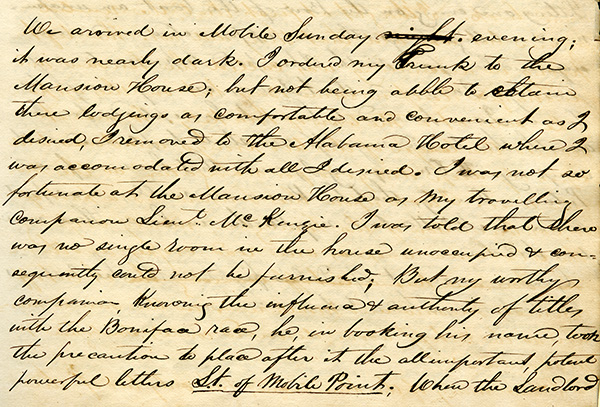 We arrived in Mobile Sunday night. evening;
it was nearly dark. I orderd my Trunk to the
Mansion House; but not being abble to obtain
there lodgings as comfortable and convenient as I
desired, I removed to the Alabama Hotel where I
was accomodated with all I desired. I was not so
fortunate at the Mansion House as my travelling
companion Lieut. McKenzie. I was told that there
was no single room in the house unoccupied & con-
sequently could not be furnished; But my worthy
companion Knowing the influence & authority of titles
with the Boniface race, he in booking his name, took
the precaution to place after it the all important, potent
powerful letters Lt. of Mobile Point; When the Landlord